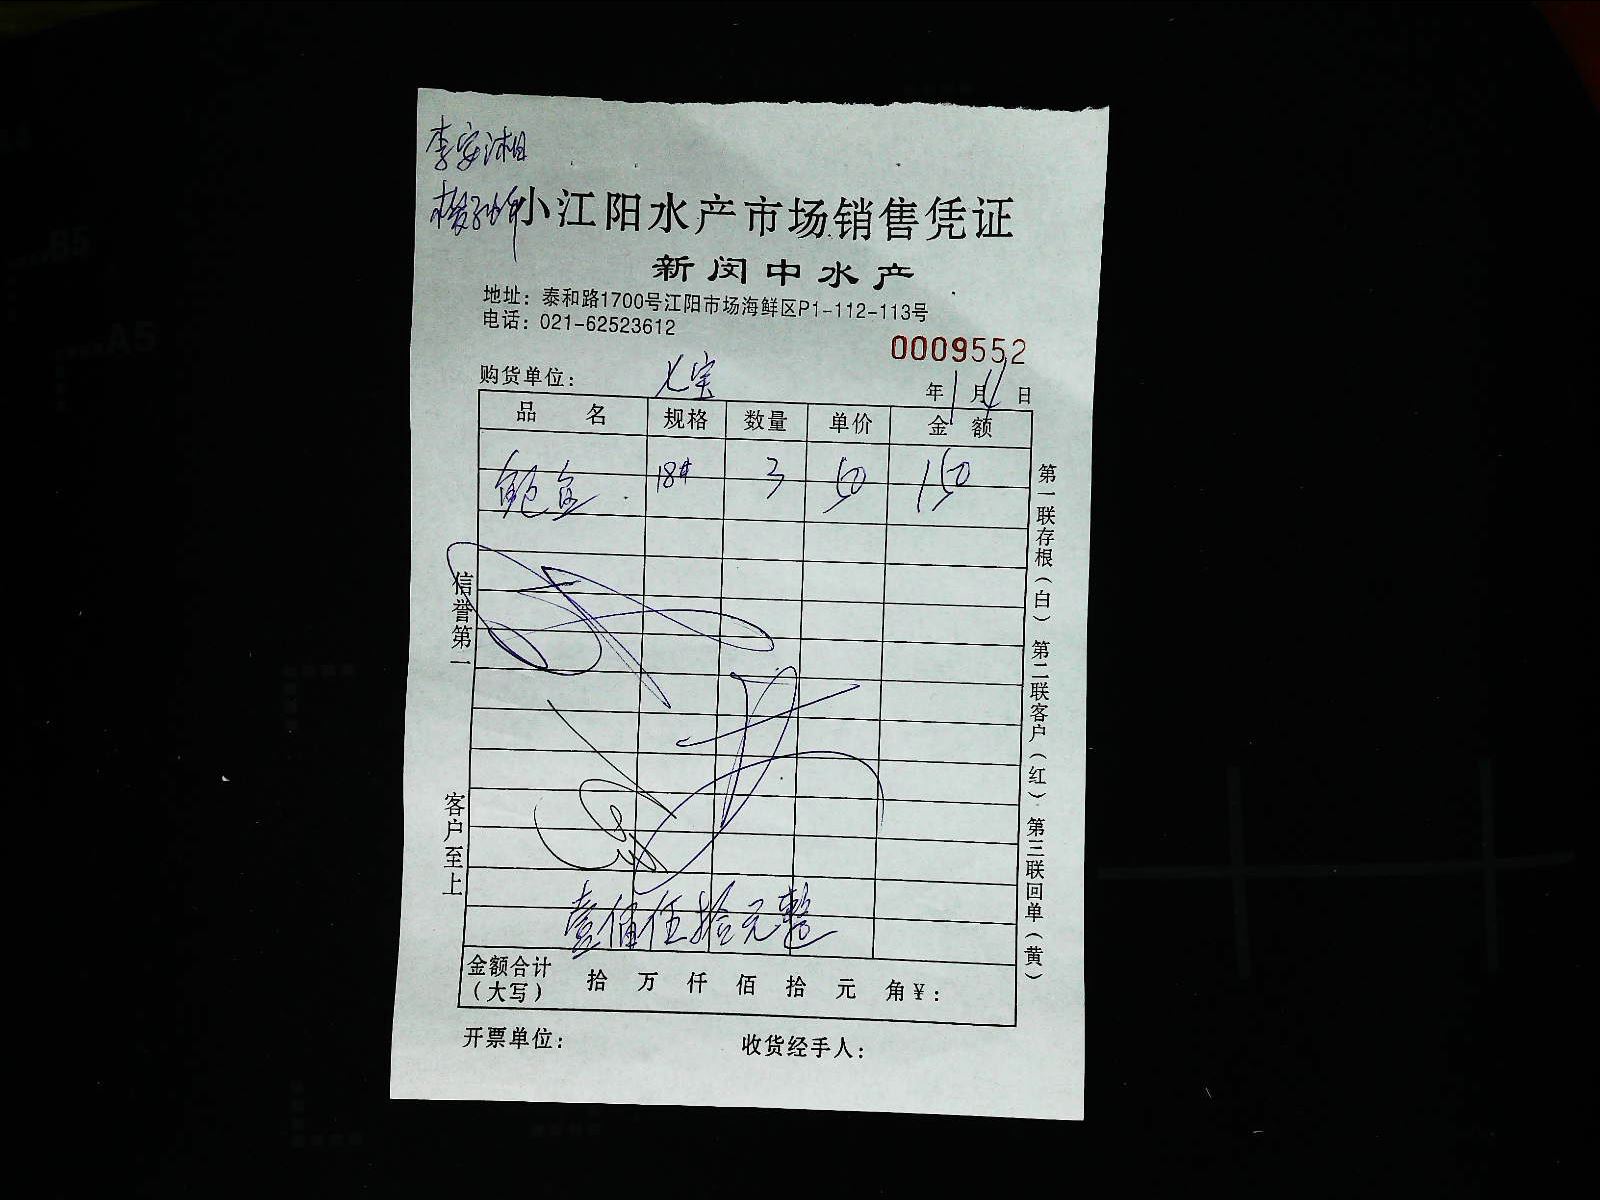 李安湘
小江阳水产市场销售凭证
新闵中水产
地址：泰和路1700号江阳市场海鲜区P1-112-113号
电话：021-62523612
0009552
购货单位：七宝 年1月4日
品 名 规格 数量 单价 金 额
鲍鱼 18# 3 50 150
信誉第一
客户至上
第一联存根（白） 第二联客户（红） 第三联回单（黄）
壹佰伍拾元整
金额合计（大写） 拾 万 仟 佰 拾 元 角¥：
开票单位： 收货经手人：